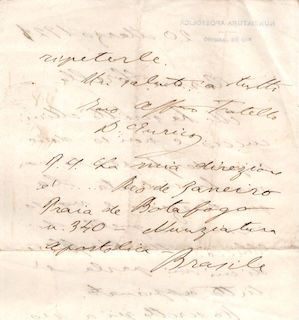 ripeterle.
Un saluto a tutti
Suo affmo Fratello
D. Enrico
P.S. La mia direzione
è .. Rio de Janeiro
Praia de Botafogo
n. 340 = Nunziatura
Apostolica Brasile